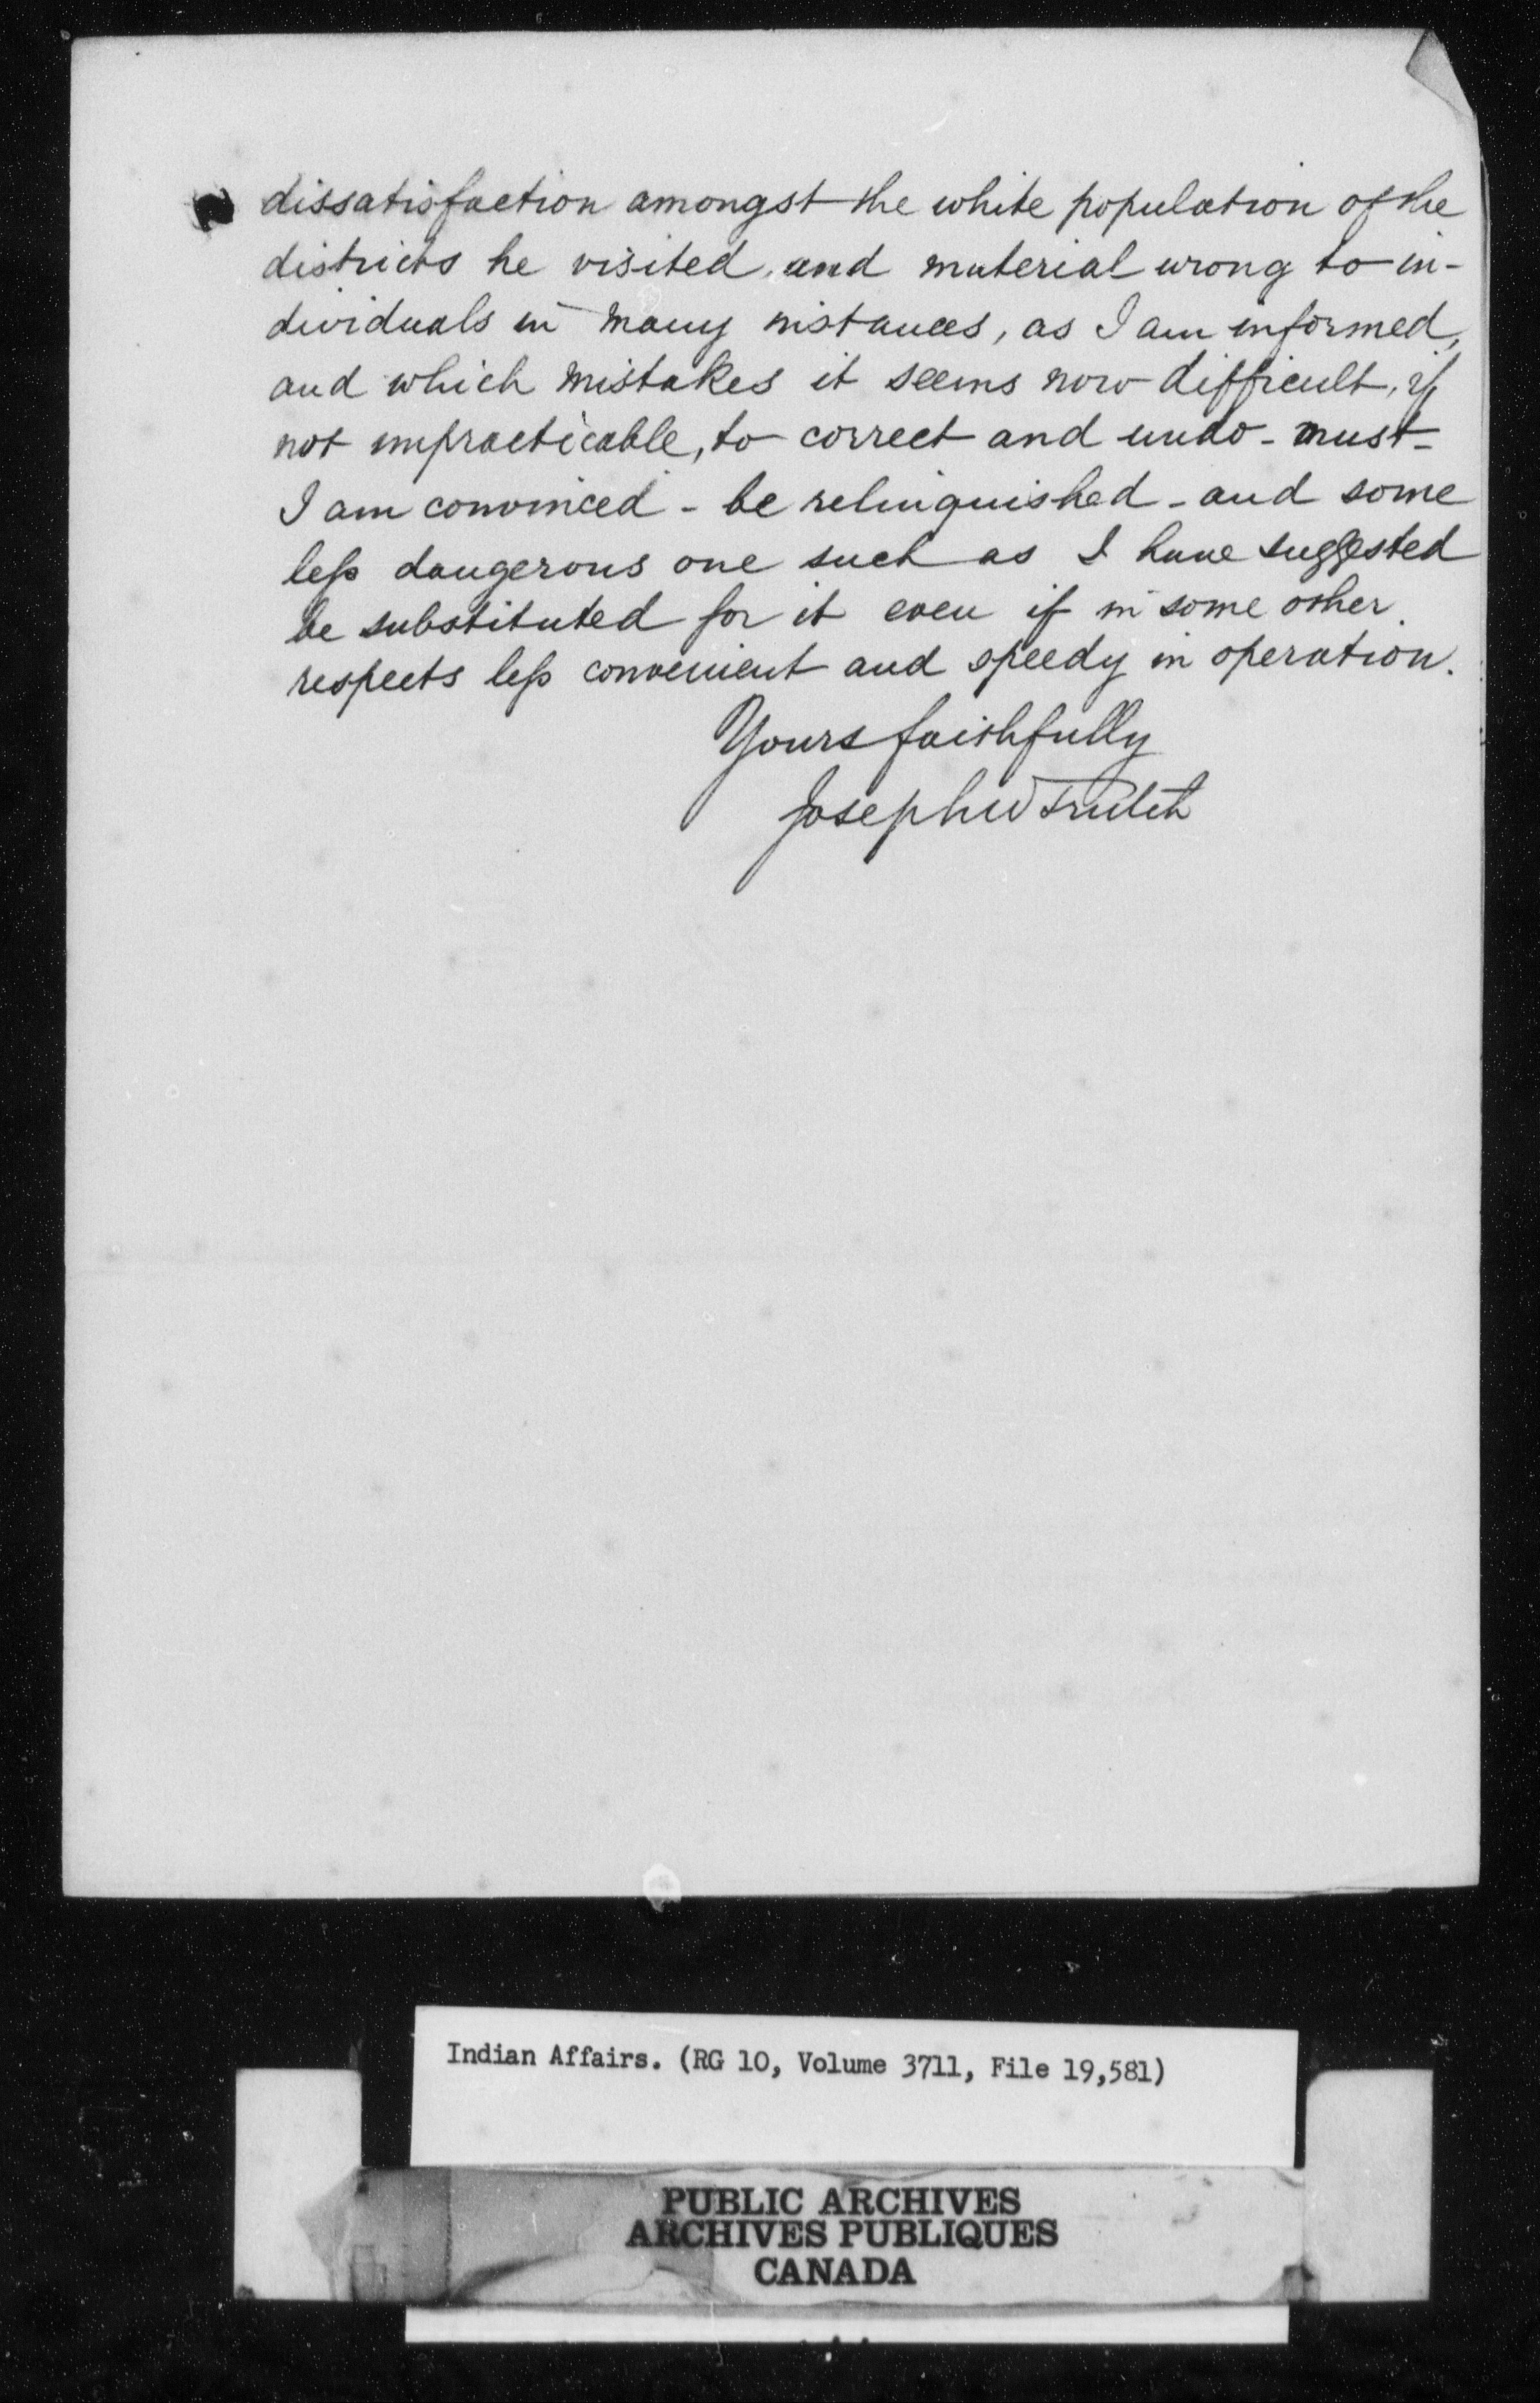 dissatisfaction amongst the white population of the
districts he visited, and material wrong to in-
dividuals in many instances, as I am informed,
and which mistakes it seems now difficult, if
not impracticable, to correct and undo - must -
I am convinced - be relinquished - and some
less dangerous one such as I have suggested
be substituted for it even if in some other
respects less convenient and speedy in operation.
Yours faithfully
Joseph W Trutch
Indian Affairs. (RG 10, Volume 3711, File 19,581)
PUBLIC ARCHIVES
ARCHIVES PUBLIQUES
CANADA